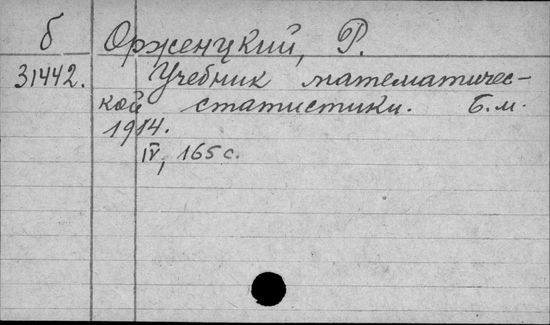 б Орженцкий, Р.
31442. Учебник математичес-
кой статистики. Б.м.
1914.
IV, 165 с.